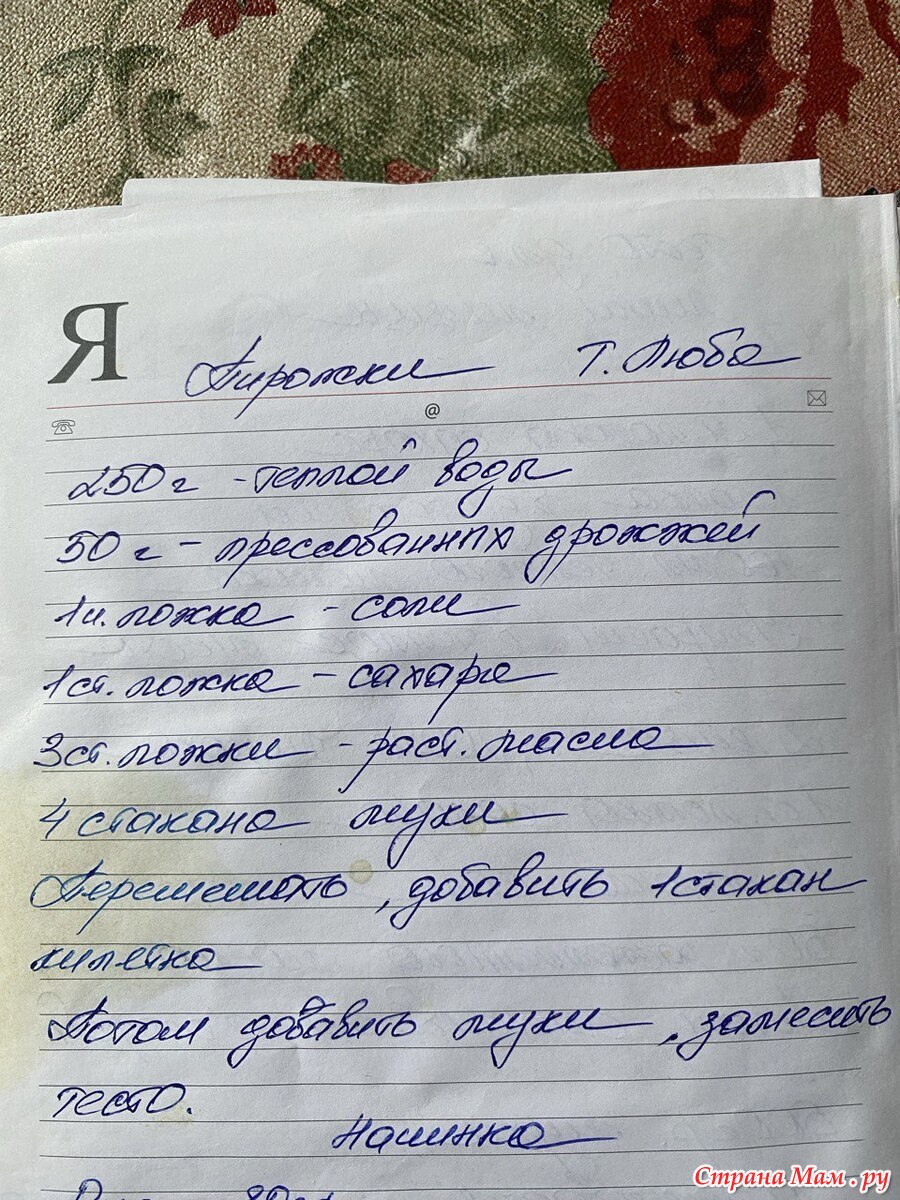 Я
Пирожки Т. Люба
@
250 г - теплой воды
50 г - прессованных дрожжей
1 ч. ложка - соли
1 ст. ложка - сахара
3 ст. ложки - раст. масла
4 стакана муки
Перемешать, добавить 1 стакан
кипятка
Потом добавить муки, замесить
тесто.
Начинка
Страна Мам.ру